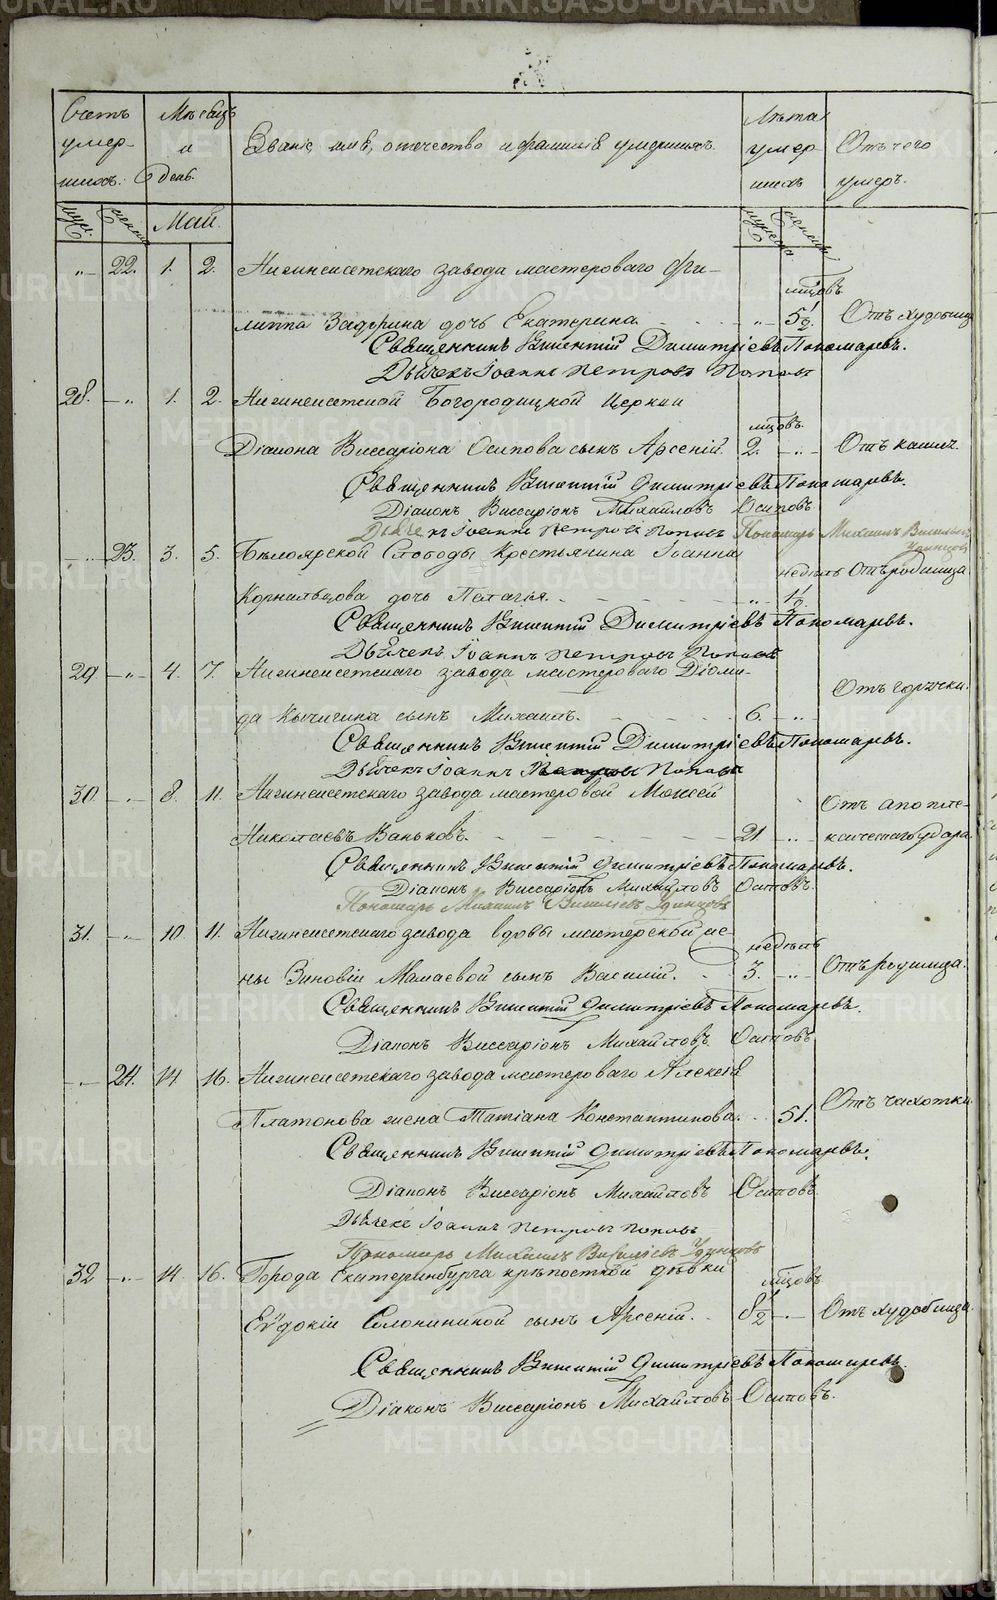 METRIKI.GASO-URAL.RU
Счетъ умер- шихъ.
Мѣсяцъ и день.
Званіе, имя, отечество и фамилія умершихъ.
Лѣта умер- шихъ
Отъ чего умеръ.
муж. женск. Май. мужеска женска
„ 22. 1. 2. Нижнеисетскаго завода мастероваго Фи-
мѣсяцовъ
липпа Задорина дочь Екатерина. „ 5½. Отъ худобища
Священникъ Викентій Димитріевъ Пономаревъ.
Дьячекъ Іоаннъ Петровъ Поповъ
28. „ 1. 2. Нижнеисетской Богородицкой Церкви
мѣсяцовъ.
Діакона Виссаріона Осипова сынъ Арсеній. 2. „ Отъ кашля.
Священникъ Викентій Димитріевъ Пономаревъ.
Діаконъ Виссаріонъ Михайловъ Осиповъ
Дьячекъ Іоаннъ Петровъ Поповъ Пономарь Михаилъ Васильевъ
„ 23. 3. 5. Бѣлоярской Слободы крестьянина Іоанна
недѣль Отъ родимца
Корнильцова дочь Пелагья. „ 1½.
Священникъ Викентій Димитріевъ Пономаревъ.
Дьячекъ Іоаннъ Петровъ Поповъ
29 „ 4. 7. Нижнеисетскаго завода мастероваго Діоми-
Отъ горячки.
да Кычигина сынъ Михаилъ. 6. „
Священникъ Викентій Димитріевъ Пономаревъ.
Дьячекъ Іоаннъ Петровъ Поповъ
30. „ 8. 11. Нижнеисетскаго завода мастеровой Моисей
Отъ апопле-
Николаевъ Ваньковъ. 21 „ ксическаго удара.
Священникъ Викентій Димитріевъ Пономаревъ.
Діаконъ Виссаріонъ Михайловъ Осиповъ.
Пономарь Михаилъ Василіевъ Удинцовъ
31. „ 10. 11. Нижнеисетскаго завода вдовы мастерской же-
недѣль
ны Зиновіи Мамаевой сынъ Василій. 3. „ Отъ родимца.
Священникъ Викентій Димитріевъ Пономаревъ.
Діаконъ Виссаріонъ Михайловъ Осиповъ
„ 24. 14 16. Нижнеисетскаго завода мастероваго Алексія
Отъ чахотки.
Платонова жена Татіана Константинова. 51.
Священникъ Викентій Димитріевъ Пономаревъ.
Діаконъ Виссаріонъ Михайловъ Осиповъ
Дьячекъ Іоаннъ Петровъ Поповъ
Пономарь Михаилъ Василіевъ Удинцовъ
32 „ 14. 16. Города Екатеринбурга крѣпостной дѣвки
мѣсяцовъ
Евдокіи Солонининой сынъ Арсеній. 8½ „ Отъ худобища.
Священникъ Викентій Димитріевъ Пономаревъ.
Діаконъ Виссаріонъ Михайловъ Осиповъ.